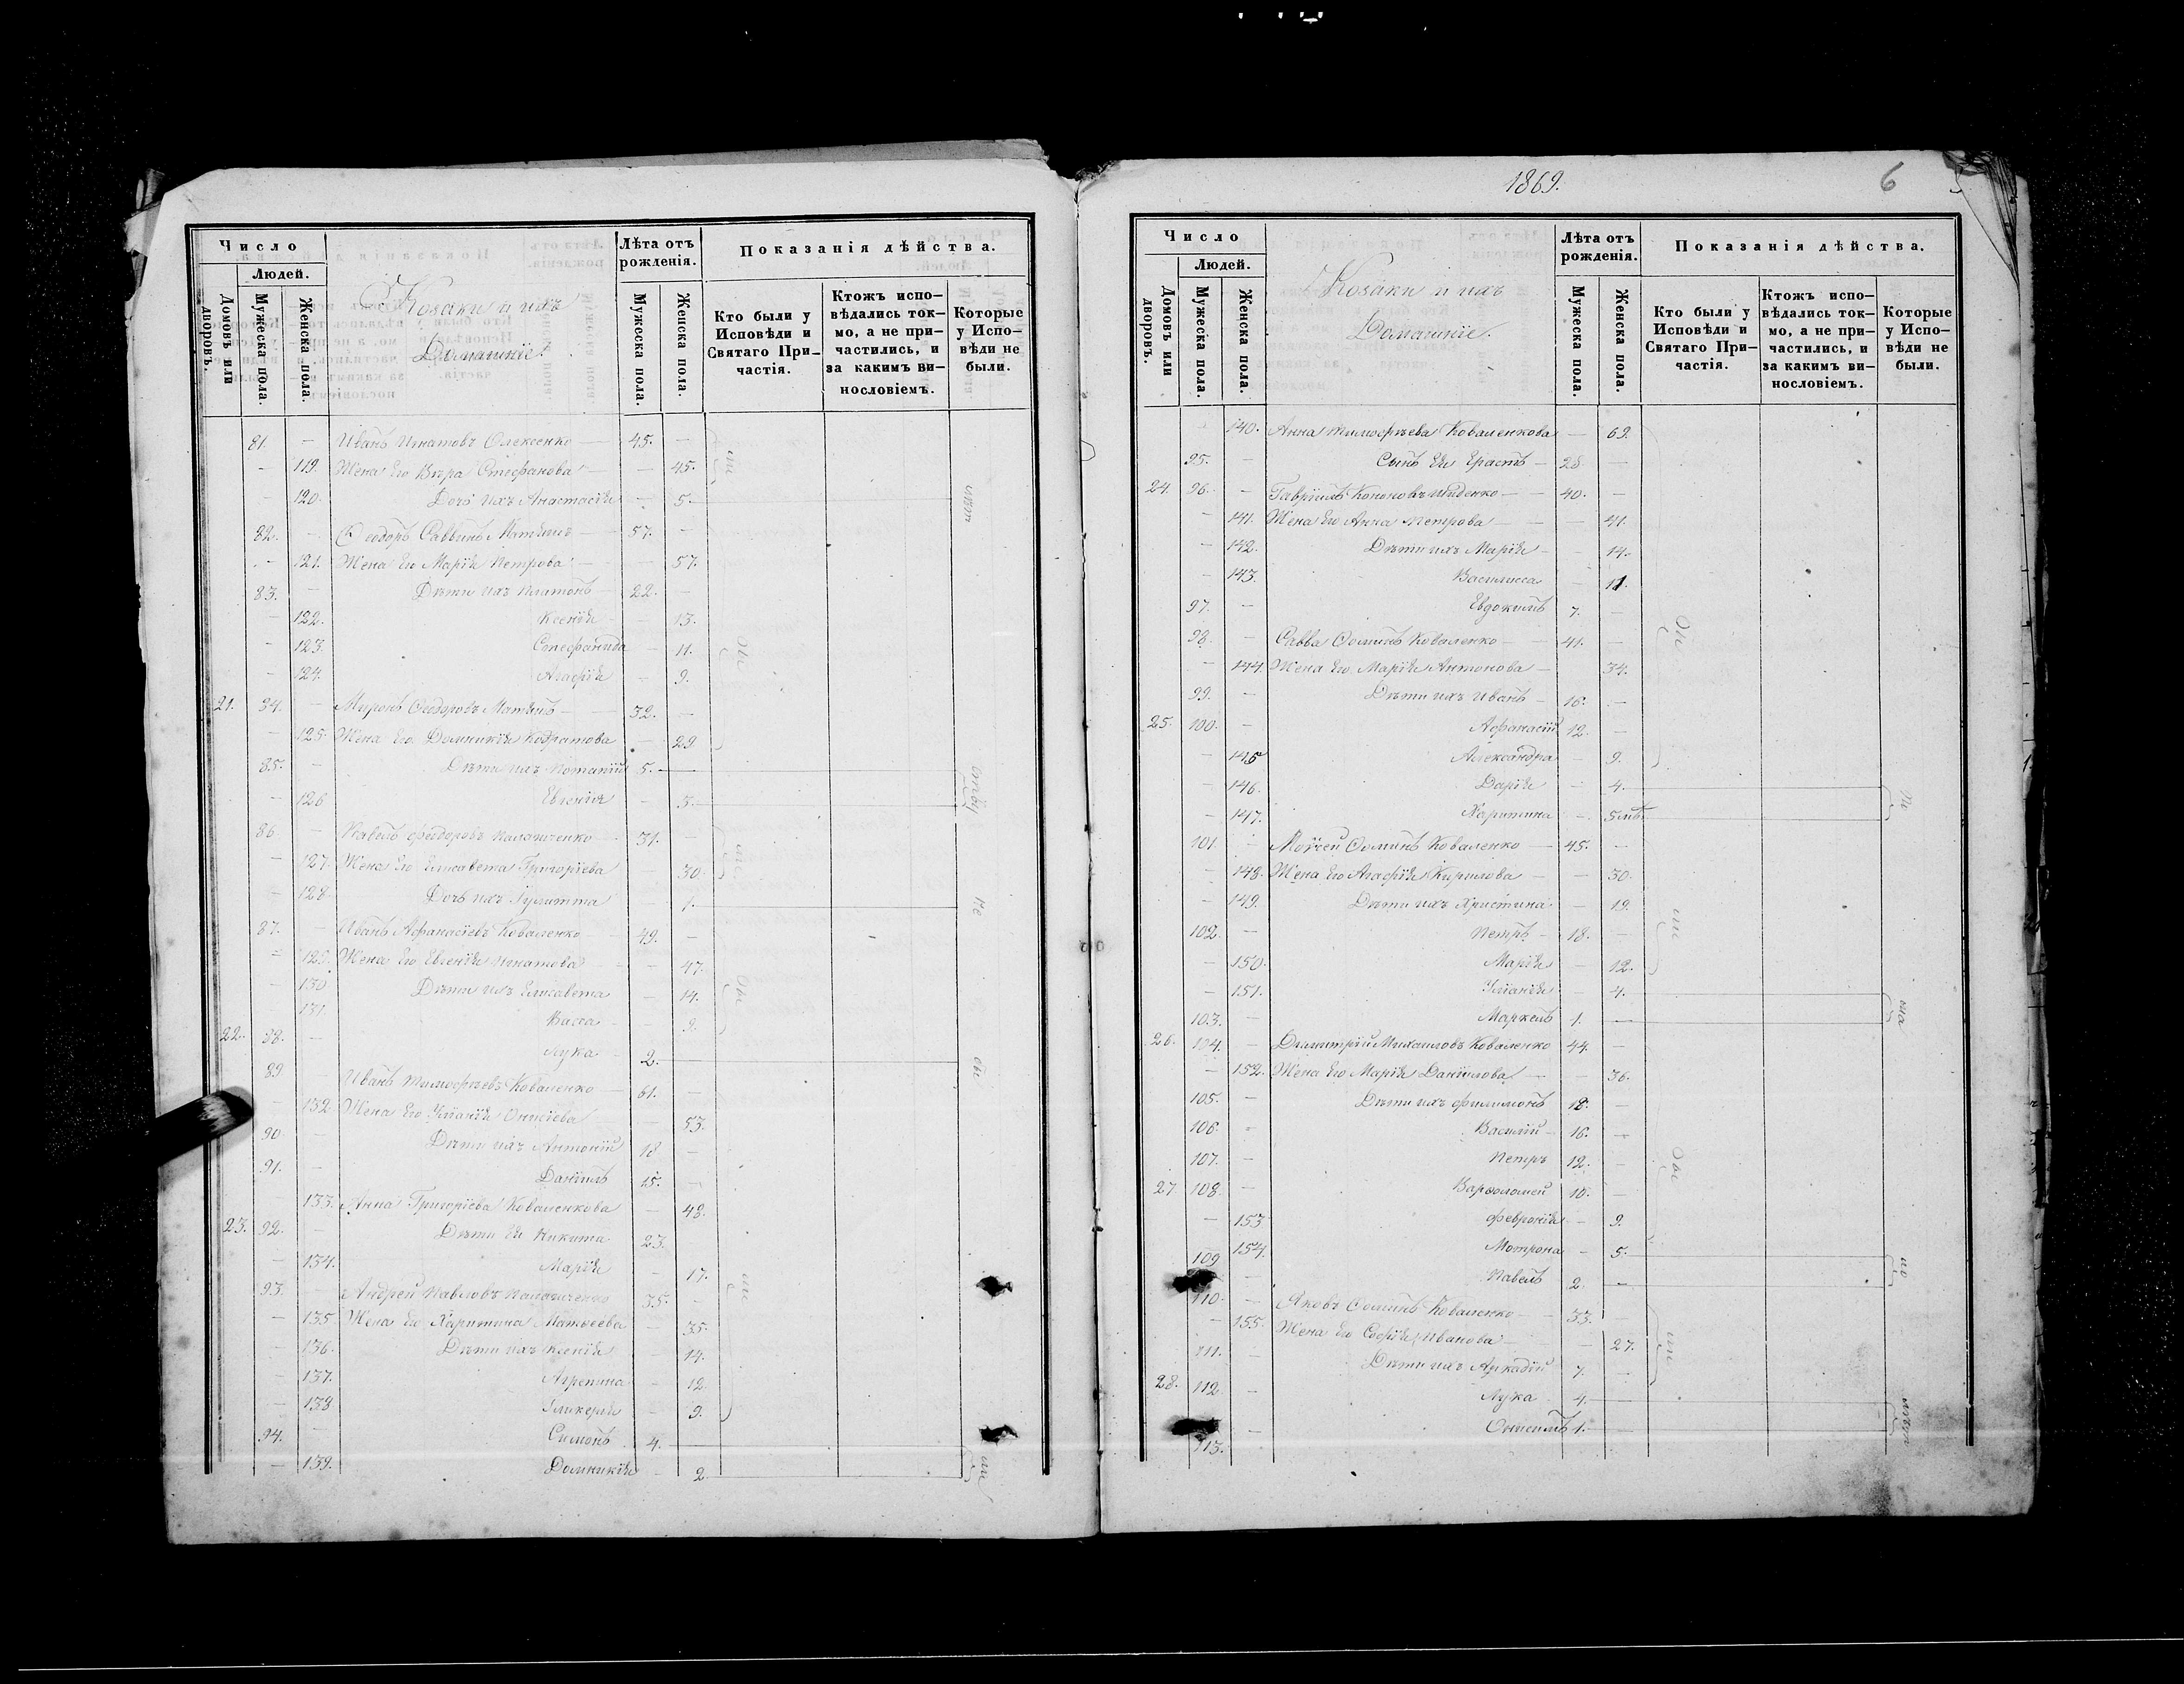 Число
Людей.
Домовъ или дворовъ.
Мужеска пола.
Женска пола.
Козаки и ихъ
Домашніе.
Лѣта отъ рожденія.
Мужеска пола.
Женска пола.
Показанія дѣйства.
Кто были у Исповѣди и Святаго При-частія.
Ктожъ испо-вѣдались ток-мо, а не при-частились, и за какимъ ви-нословіемъ.
Которые у Испо-вѣди не были.
81. — Иванъ Игнатовъ Олексенко — 45. —
— 119. Жена Его Вѣра Стефанова — — 45.
— 120. Дочь ихъ Анастасія — 5.
82. — Ѳеодоръ Саввинъ — 57. —
— 121. Жена Его Марія Петрова — — 57.
83. — Дѣти ихъ Платонъ 22. —
— 122. Ксенія — 13.
— 123. Стефанида — 11.
— 124. Агафія — 9.
21. 84. — Миронъ Ѳеодоровъ — 32. —
— 125. Жена Его Домникія Кодратова — 29
85. — Дѣти ихъ Потапій 5. —
— 126 Евгенія — 3.
86. — Павелъ Феодоровъ 31. —
— 127. Жена Его Елисавета Григоріева — 30.
— 128 Дочь ихъ Іулитта — 1.
87. — Иванъ Афанасіевъ Коваленко 49. —
129. Жена Его Евгенія Игнатова — 47.
— 130 Дѣти ихъ Елисавета — 14.
131 Васса — 9.
22. 88. — Лука 2.
89 — Иванъ Тимофѣевъ Коваленко — 61. —
— 132 Жена Его Уліанія Онисіева — 53.
90. — Дѣти ихъ Антоній 18 —
91. — Даніилъ 15. —
133. Анна Григоріева Коваленкова — 48.
23. 92. — Дѣти Ея Никита 23.
— 134. Марія — 17.
93. — Андрей Павловъ 35. —
— 135 Жена Его Харитина Матвеева — 35.
— 136. Дѣти ихъ Ксенія — 14.
— 137. Агрепина — 12
— 138 Гликерія — 9.
94. — Симонъ 4.
— 139. Домникія — 2
1869.
6
Число
Людей.
Домовъ или дворовъ.
Мужеска пола.
Женска пола.
Козаки и ихъ
Домашніе.
Лѣта отъ рожденія.
Мужеска пола.
Женска пола.
Показанія дѣйства.
Кто были у Исповѣди и Святаго При-частія.
Ктожъ испо-вѣдались ток-мо, а не при-частились, и за какимъ ви-нословіемъ.
Которые у Испо-вѣди не были.
— 140. Анна Тимофѣева Коваленкова — 69.
95. — Сынъ Ея Ерастъ — 28. —
24. 96. — Гавріилъ Кононовъ — 40. —
— 141. Жена Его Анна Петрова — — 41.
— 142. Дѣти ихъ Марія — — 14.
— 143. Василисса — 11.
97. — Евдокимъ 7. —
98. — Савва Ѳоминъ Коваленко — 41. —
— 144. Жена Его Марія Антонова — 34.
99. — Дѣти ихъ Иванъ — 16. —
25. 100. — Афанасій 12. —
— 145 Александра — 9.
— 146. Дарія — 4.
— 147. Харитина — 5 мѣ.
101. — Моисей Ѳоминъ Коваленко — 45. —
— 148. Жена Его Агафія Кирилова — — 30.
— 149. Дѣти ихъ Христина — 19.
102. — Петръ — 18. —
— 150. Марія — 12.
— 151. Уліанія — 4.
103. — Маркелъ 1. —
26. 104. — Димитрій Михаиловъ Коваленко 44. —
— 152. Жена Его Марія Даніилова — — 36.
105. — Дѣти ихъ Филимонъ 18. —
106. — Василій — 16. —
107. — Петръ 12. —
27. 108. — Варѳоломей 10. —
— 153 Февронія — 9.
154. Мотрона — 5.
109 — Павелъ 2. —
110. — Яковъ Ѳоминъ Коваленко — 33. —
— 155. Жена Его Софія Иванова — — 27.
111. — Дѣти ихъ Аркадій 7. —
28. 112. — Лука 4.
113. — Онисимъ 1. —